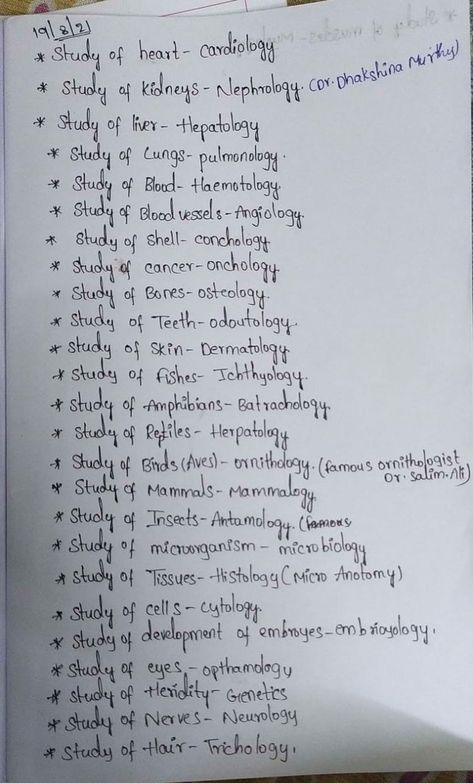 19/8/21
* Study of heart - cardiology
* Study of kidneys - Nephrology. (Dr. Dhakshina Murthy)
* Study of liver - Hepatology
* Study of Lungs - pulmonology.
* Study of Blood - Haemotology.
* Study of Blood vessels - Angiology.
* Study of shell - conchology
* Study of cancer - onchology.
* Study of Bones - osteology.
* Study of Teeth - odoutology.
* Study of Skin - Dermatology.
* Study of fishes - Ichthyology.
* Study of Amphibians - Batrachology.
* Study of Reptiles - Herpatology
* Study of Birds (Aves) - ornithology. (famous ornithologist
Dr. Salim. Ali)
* Study of Mammals - Mammalogy
* Study of Insects - Antamology. (famous
* Study of microorganism - microbiology
* Study of Tissues - Histology (Micro Anotomy)
* Study of cells - cytology.
* Study of development of embroyes - embrioyology.
* Study of eyes - opthamology
* Study of Heridity - Genetics
* Study of Nerves - Neurology
* Study of Hair - Trichology.